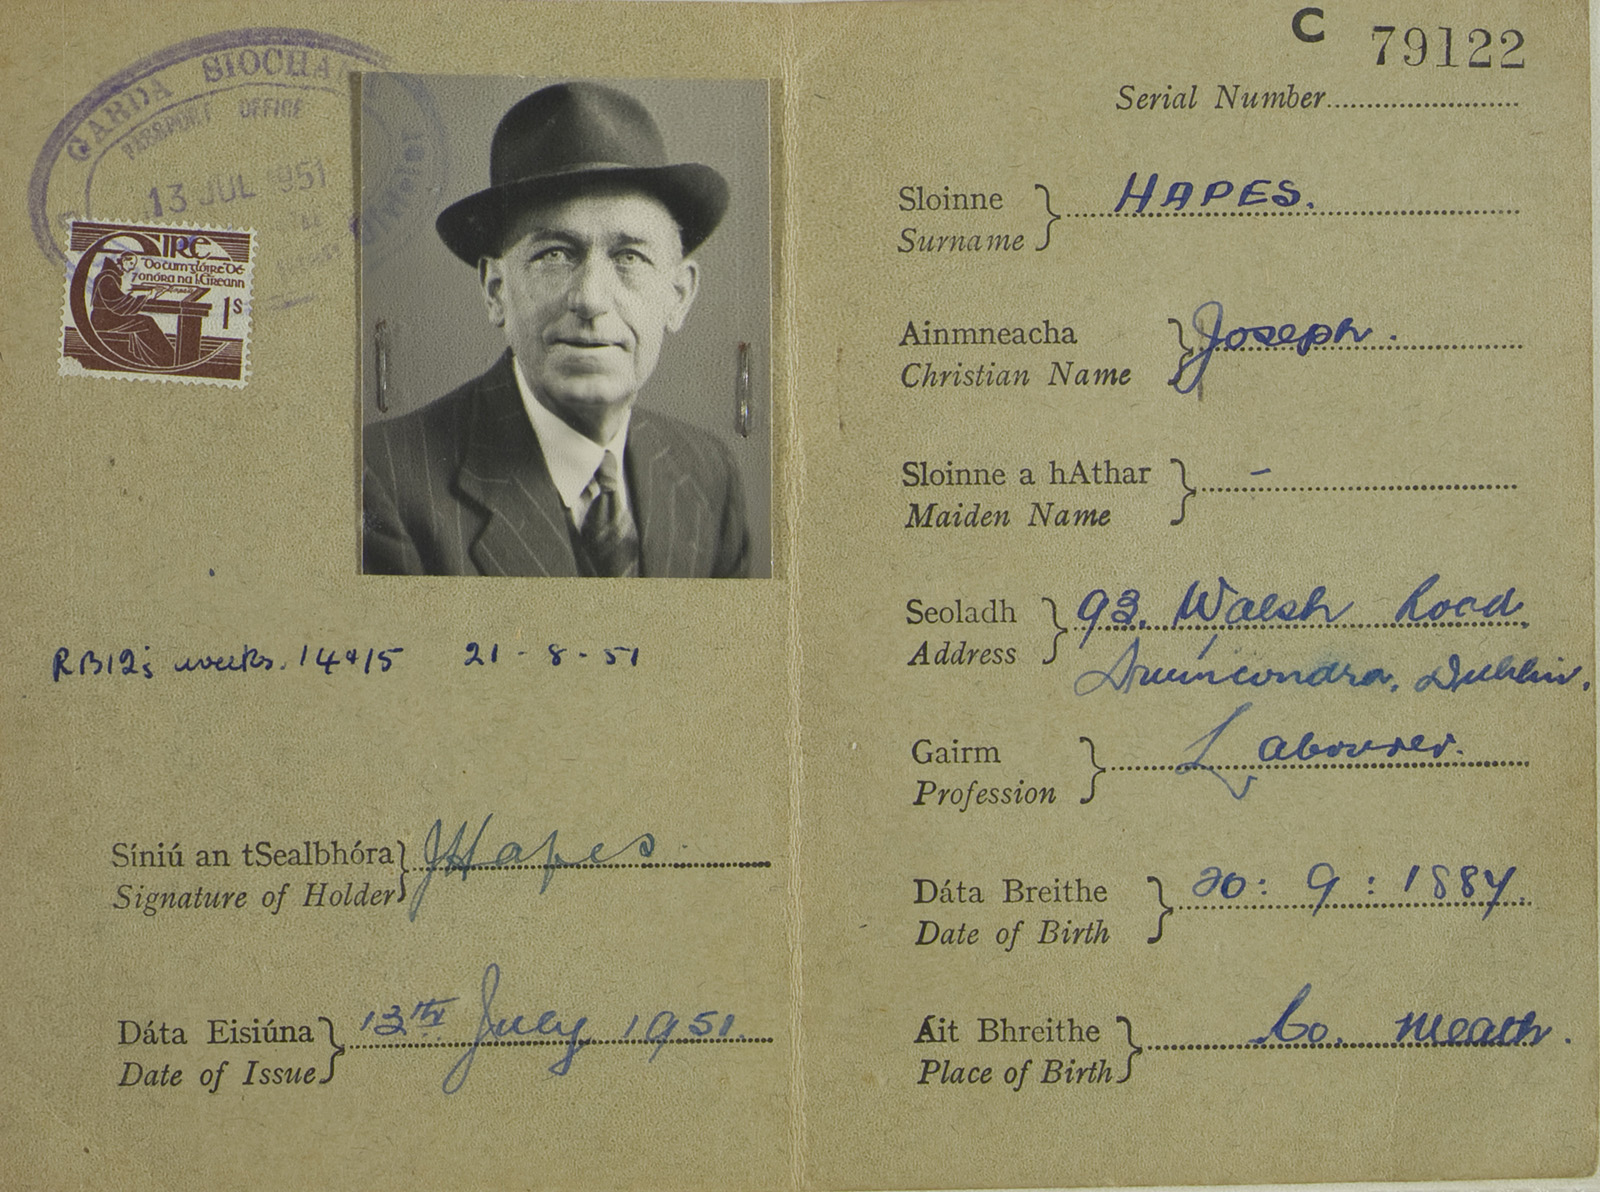 GARDA SIOCHA
PASSPORT OFFICE
13 JUL 1951
EIRE
Do cum glóire Dé
7 onóra na hÉireann
1s
RB12s weeks. 14&15 21-8-51
Síniú an tSealbhóra
Signature of Holder
JHapes.
Dáta Eisiúna
Date of Issue
13th July 1951.
C 79122
Serial Number
Sloinne
Surname
HAPES.
Ainmneacha
Christian Name
Joseph.
Sloinne a hAthar
Maiden Name
–
Seoladh
Address
93, Walsh Road,
Drumcondra, Dublin.
Gairm
Profession
Labourer.
Dáta Breithe
Date of Birth
20: 9: 1887.
Áit Bhreithe
Place of Birth
Co. Meath.